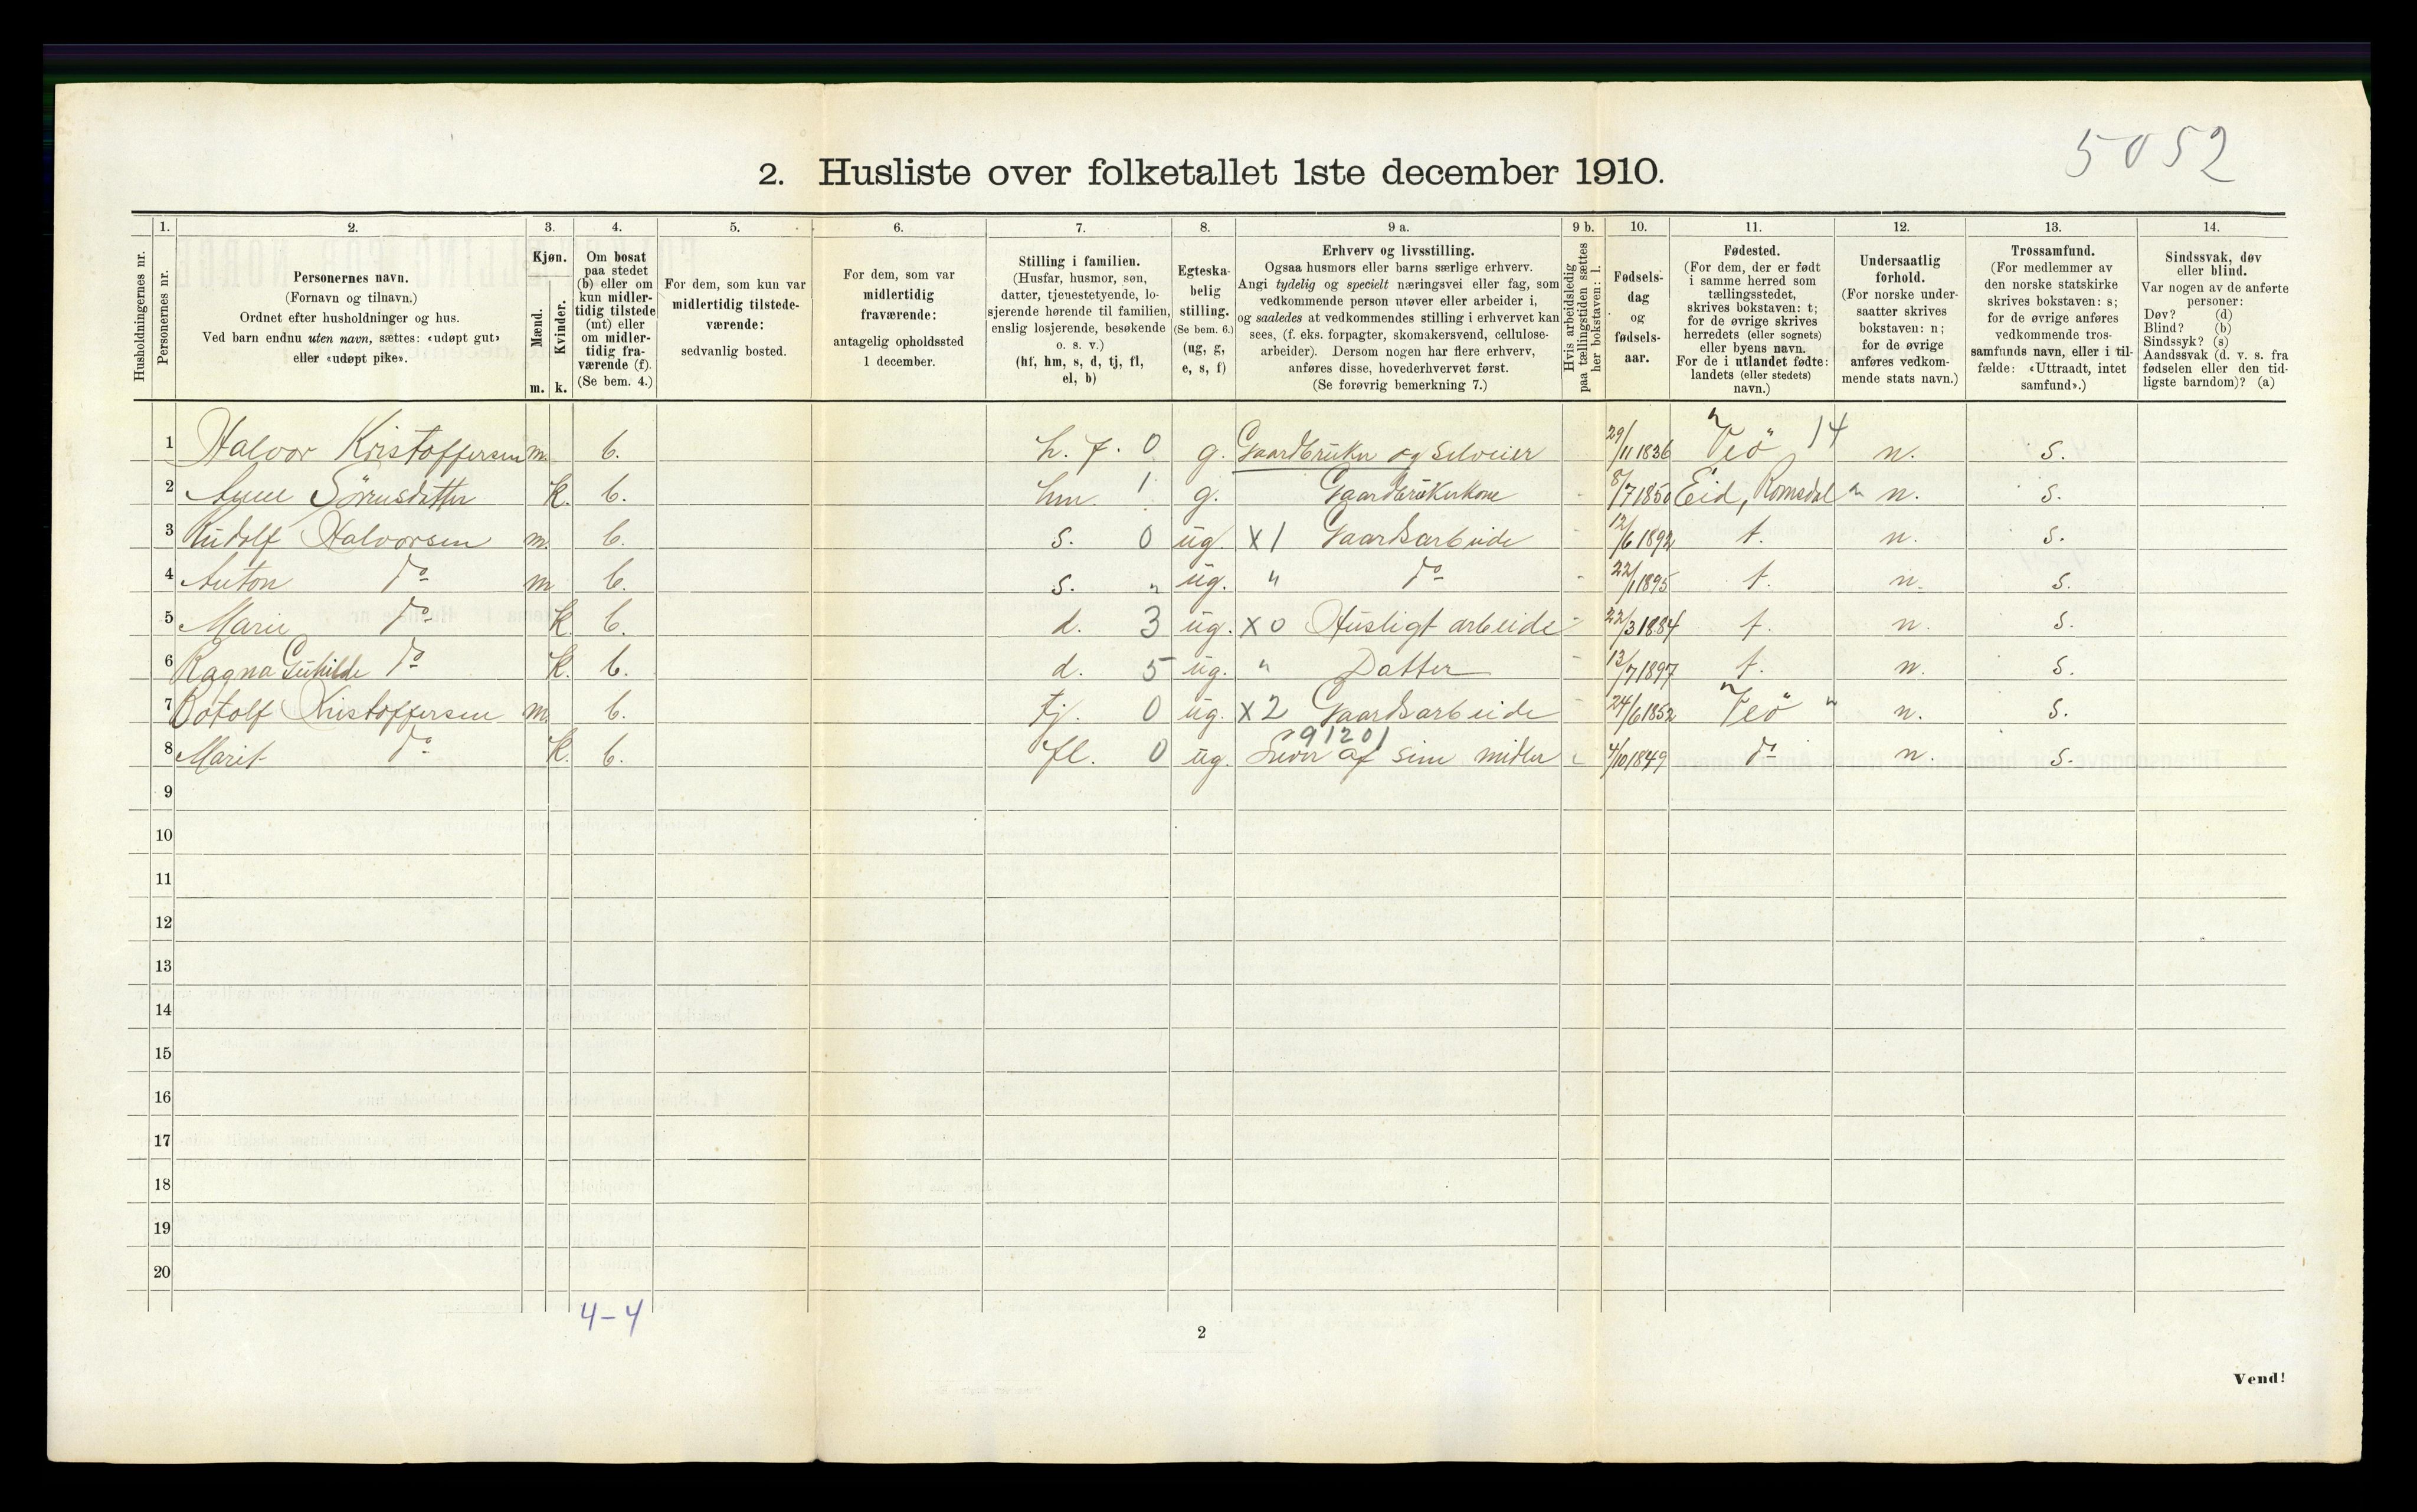 5052
2. Husliste over folketallet 1ste december 1910.
Husholdningernes nr.
1. Personernes nr.
2. Personernes navn.
(Fornavn og tilnavn.)
Ordnet efter husholdninger og hus.
Ved barn endnu uten navn, sættes: «udøpt gut»
eller «udøpt pike».
3. Kjøn.
Mænd. m.
Kvinder. k.
4. Om bosat
paa stedet
(b) eller om
kun midler-
tidig tilstede
(mt) eller
om midler-
tidig fra-
værende (f).
(Se bem. 4.)
5. For dem, som kun var
midlertidig tilstede-
værende:
sedvanlig bosted.
6. For dem, som var
midlertidig
fraværende:
antagelig opholdssted
1 december.
7. Stilling i familien.
(Husfar, husmor, søn,
datter, tjenestetyende, lo-
sjerende hørende til familien,
enslig losjerende, besøkende
o. s. v.)
(hf, hm, s, d, tj, fl,
el, b)
8. Egteska-
belig
stilling.
(Se bem. 6.)
(ug, g,
e, s, f)
9 a. Erhverv og livsstilling.
Ogsaa husmors eller barns særlige erhverv.
Angi tydelig og specielt næringsvei eller fag, som
vedkommende person utøver eller arbeider i,
og saaledes at vedkommendes stilling i erhvervet kan
sees, (f. eks. forpagter, skomakersvend, cellulose-
arbeider). Dersom nogen har flere erhverv,
anføres disse, hovederhvervet først.
(Se forøvrig bemerkning 7.)
9 b. Hvis arbeidsledig
paa tællingstiden sættes
her bokstaven: l.
10. Fødsels-
dag
og
fødsels-
aar.
11. Fødested.
(For dem, der er født
i samme herred som
tællingsstedet,
skrives bokstaven: t;
for de øvrige skrives
herredets (eller sognets)
eller byens navn.
For de i utlandet fødte:
landets (eller stedets)
navn.)
12. Undersaatlig
forhold.
(For norske under-
saatter skrives
bokstaven: n;
for de øvrige
anføres vedkom-
mende stats navn.)
13. Trossamfund.
(For medlemmer av
den norske statskirke
skrives bokstaven: s;
for de øvrige anføres
vedkommende tros-
samfunds navn, eller i til-
fælde: «Uttraadt, intet
samfund».)
14. Sindssvak, døv
eller blind.
Var nogen av de anførte
personer:
Døv? (d)
Blind? (b)
Sindssyk? (s)
Aandssvak (d. v. s. fra
fødselen eller den tid-
ligste barndom)? (a)
1 Halvor Kristoffersen m. b. h. f. 0 g. Gaardbruker og Selveier 29/11 1836 Veö 14 n. s.
2 Sörensdatter k. b. hm 1 g. Gaardbrukerkone - 8/7 1850 Eid, Romsdal n. s.
3 Rudolf Halvorsen m. b. s. 0 ug. x1 Gaardsarbeide - 12/6 1892 t. n. s.
4 Anton do m. b. s. " ug. " do - 22/1 1895 t. n. s.
5 Marie do k. b. d. 3 ug. x0 Husligt arbeide - 22/3 1884 t. n. s.
6 Ragna Guhilde do k. b. d. 5 ug. " Datter - 13/7 1897 t. n. s.
7 Botolf Kristoffersen m. b. tj. 0 ug. x2 Gaardsarbeide - 24/6 1852 Veö " n. s.
8 Marit do k. b. fl. 0 ug. 91201 Lever af sine midler - 4/10 1849 do n. s.
9
10
11
12
13
14
15
16
17
18
19
20
4-4
2
Vend!